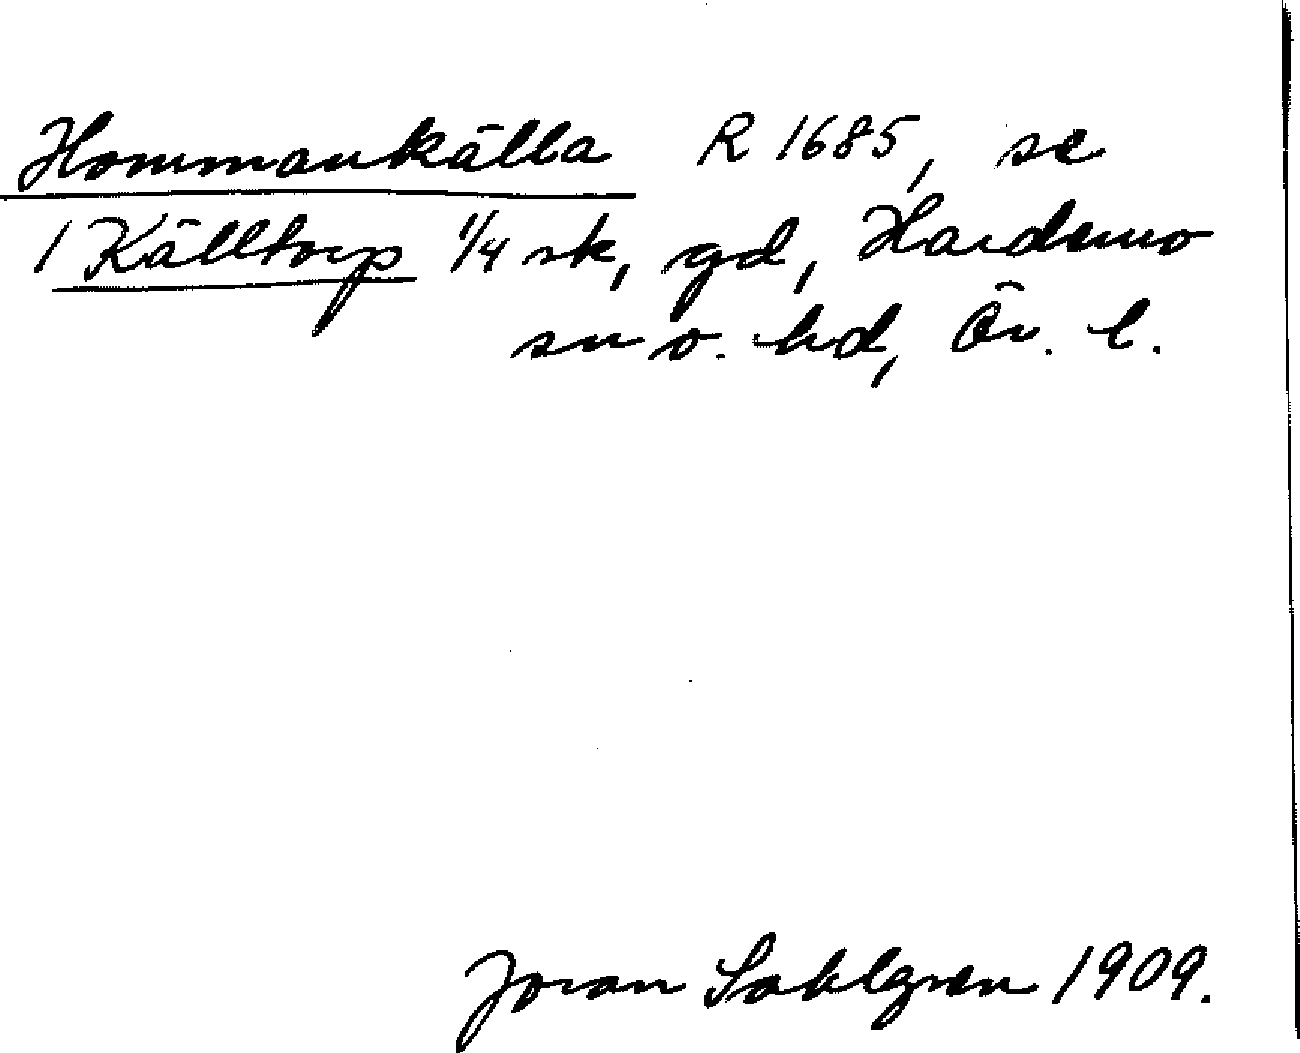 Hommankälla R 1685, se
1 Källtorp 1/4 sk, gd, Hardemo
sn o. hd, Ör. l.
Joran Sahlgren 1909.